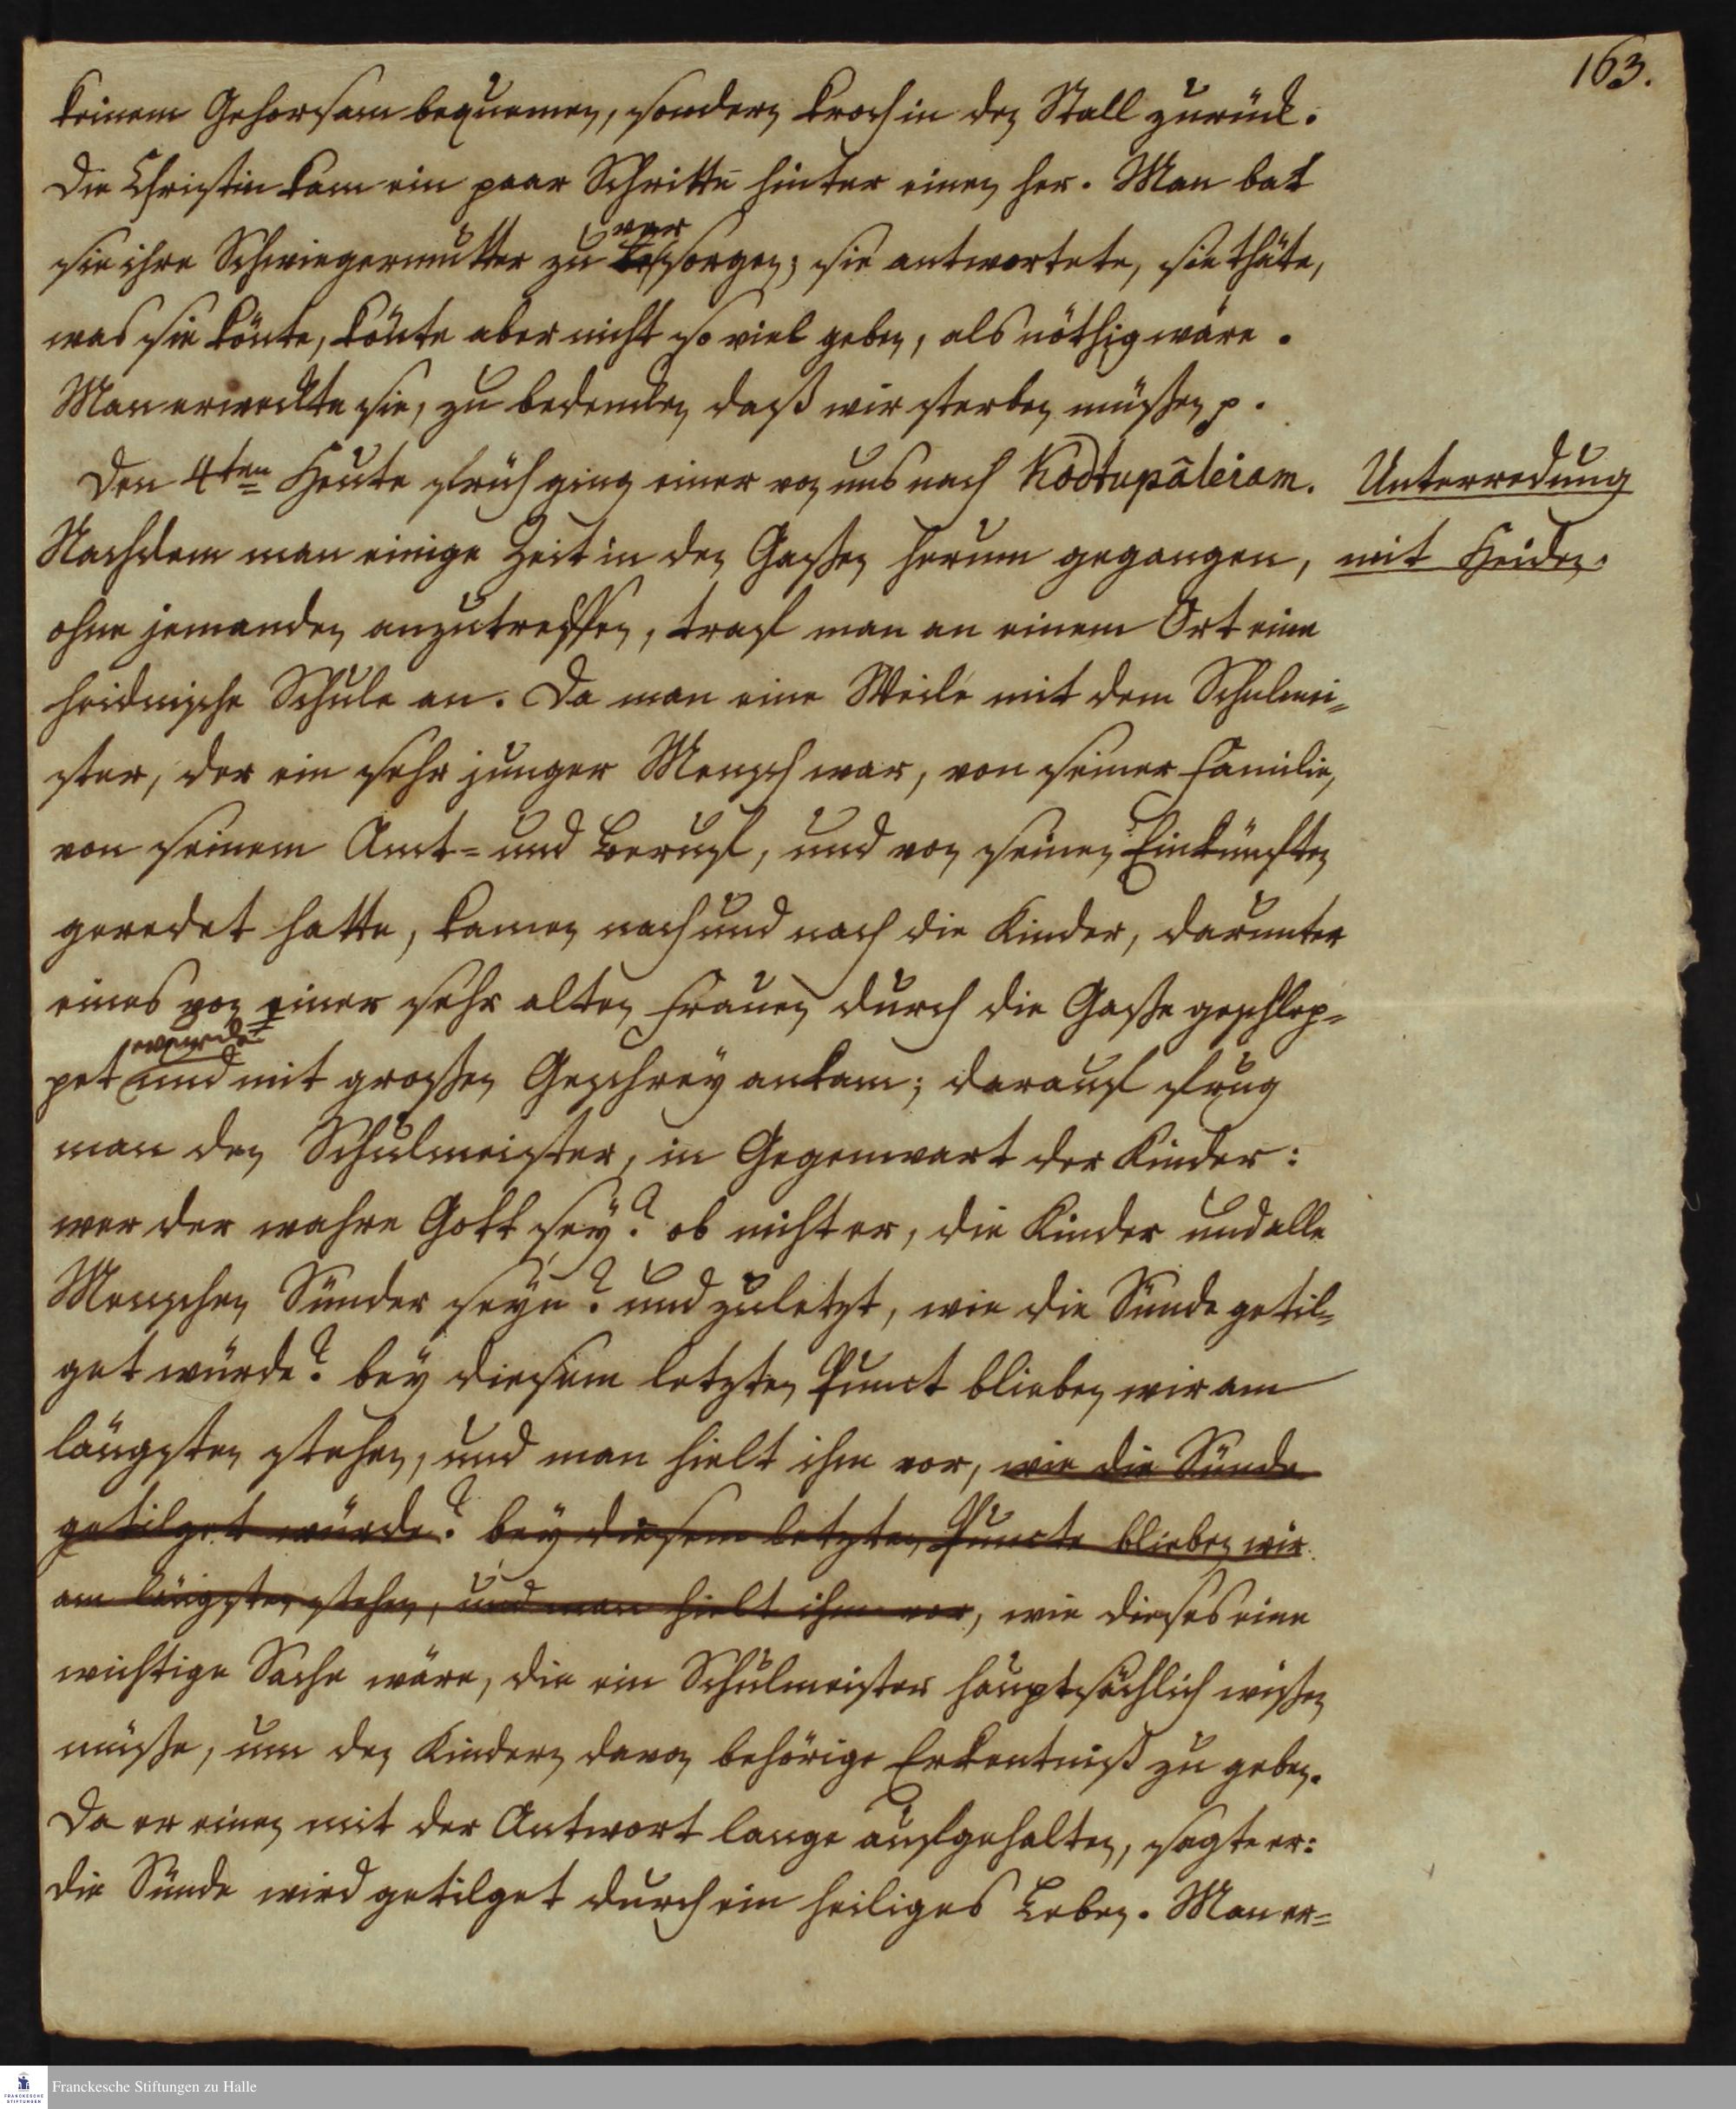 163.
keinem Gehorsam bequemen, sondern kroch in den Stall zurück.
Die Christin kam ein paar Schritte hinter einen her. Man bat
sie ihre Schwiegermutter zu versorgen; sie antwortete, sie thäte,
was sie könte, könte aber nicht so viel geben, als nöthig wäre.
Man erweckte sie, zu bedencken, daß wir sterben müßen p.
Den 4ten Heute früh ging einer von uns nach Kodtupâleiam.
Unterredung
Nachdem man einige Zeit in den Gaßen herum gegangen,
mit Heiden.
ohne jemanden anzutreffen, traf man an einem Ort eine
heidnische Schule an. Da man eine Weile mit dem Schulmei=
ster, der ein sehr junger Mensch war, von seiner Familie,
von seinem Amt= und Beruf, und von seinen Einkünften
geredet hatte, kamen nach und nach die Kinder, darunter
eines von einer sehr alten Frauen durch die Gaße geschlep=
wurde
pet und mit großen Geschrey ankam; darauf frug
man den Schulmeister, in Gegenwart der Kinder:
wer der wahre Gott sey? ob nicht er, die Kinder und alle
Menschen Sünder seyn? und zuletzt, wie die Sünde getil=
get würde? bey diesem letzten Punct blieben wir am
längsten stehen, und man hielt ihm vor, wie die Sünde
getilget würde? bey diesem letzten Puncte blieben wir
am längsten stehen, und man hielt ihm vor, wie dieses eine
wichtige Sache wäre, die ein Schulmeister hauptsächlich wißen
müße, um den Kindern davon behörige Erkentniß zu geben.
Da er einen mit der Antwort lange aufgehalten, sagte er:
die Sünde wird getilget durch ein heiliges Leben. Man er=
Franckesche Stiftungen zu Halle
FRANCKESCHE
STIFTUNGEN